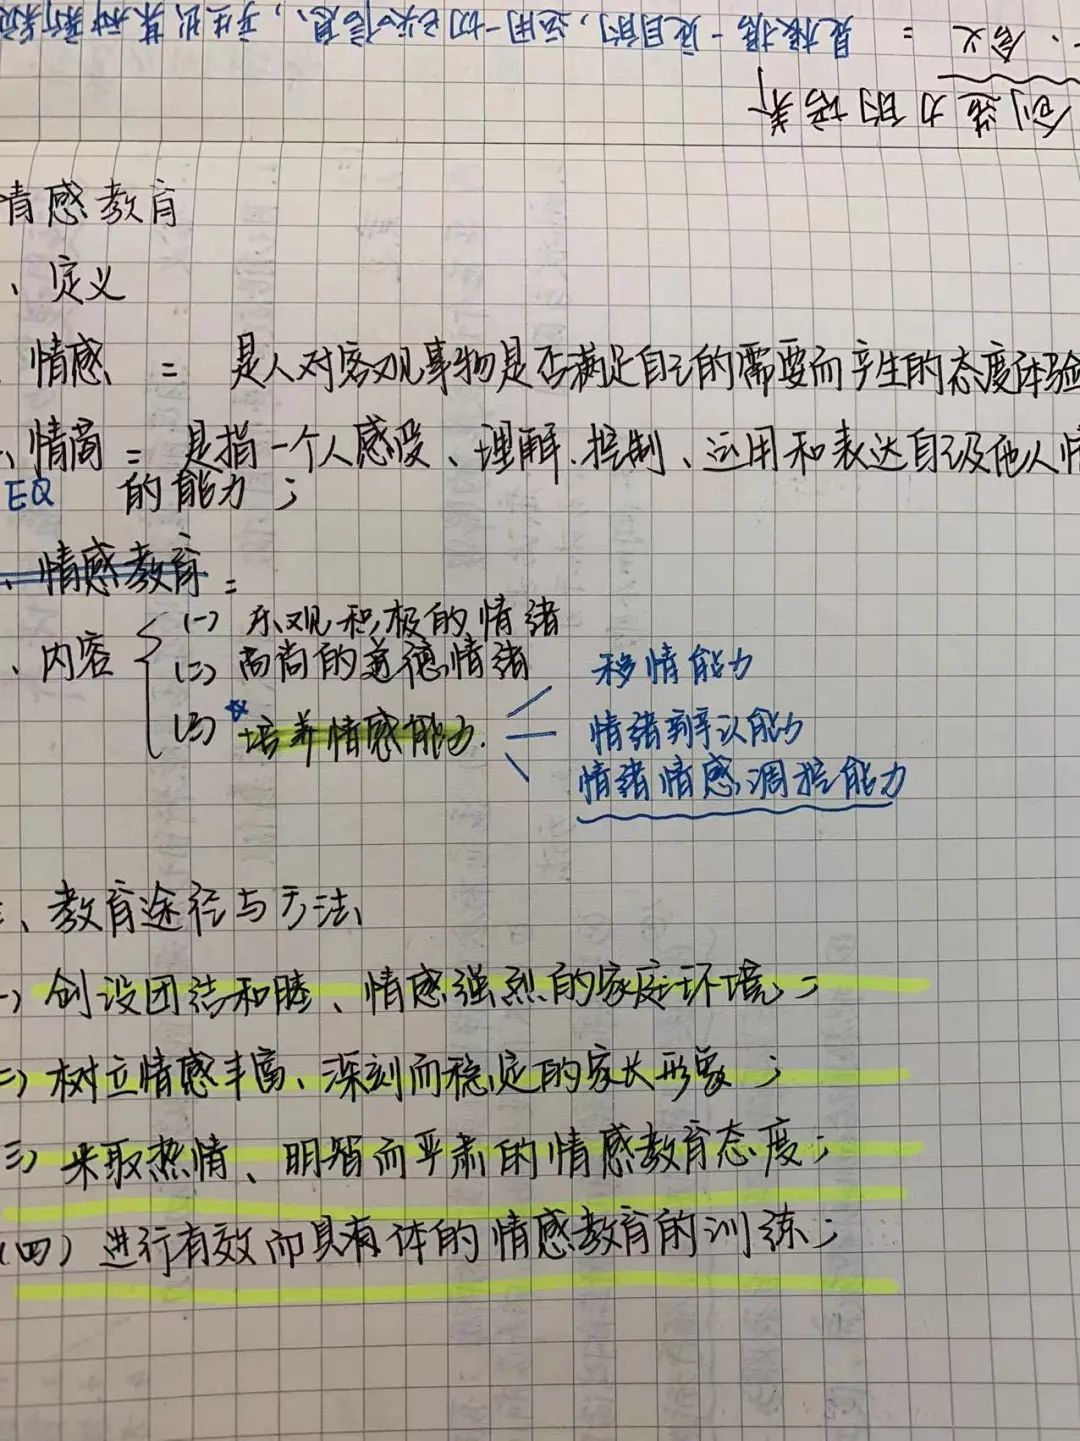 创造力的培养
、含义 = 是根据一定目的，运用一切已知信息，产生出某种新
情感教育
、定义
情感 = 是人对客观事物是否满足自己的需要而产生的态度体验
、情商 = 是指一个人感受、理解、控制、运用和表达自己及他人情
EQ 的能力；
、情感教育 =
、内容
(一) 乐观积极的情绪
(二) 高尚的道德情绪
(三) ☆培养情感能力.
移情能力
情绪辨认能力
情绪情感调控能力
、教育途径与方法
) 创设团结和睦、情感强烈的家庭环境；
二) 树立情感丰富、深刻而稳定的家长形象；
三) 采取热情、明智而严肃的情感教育态度；
(四) 进行有效而具有体的情感教育的训练；